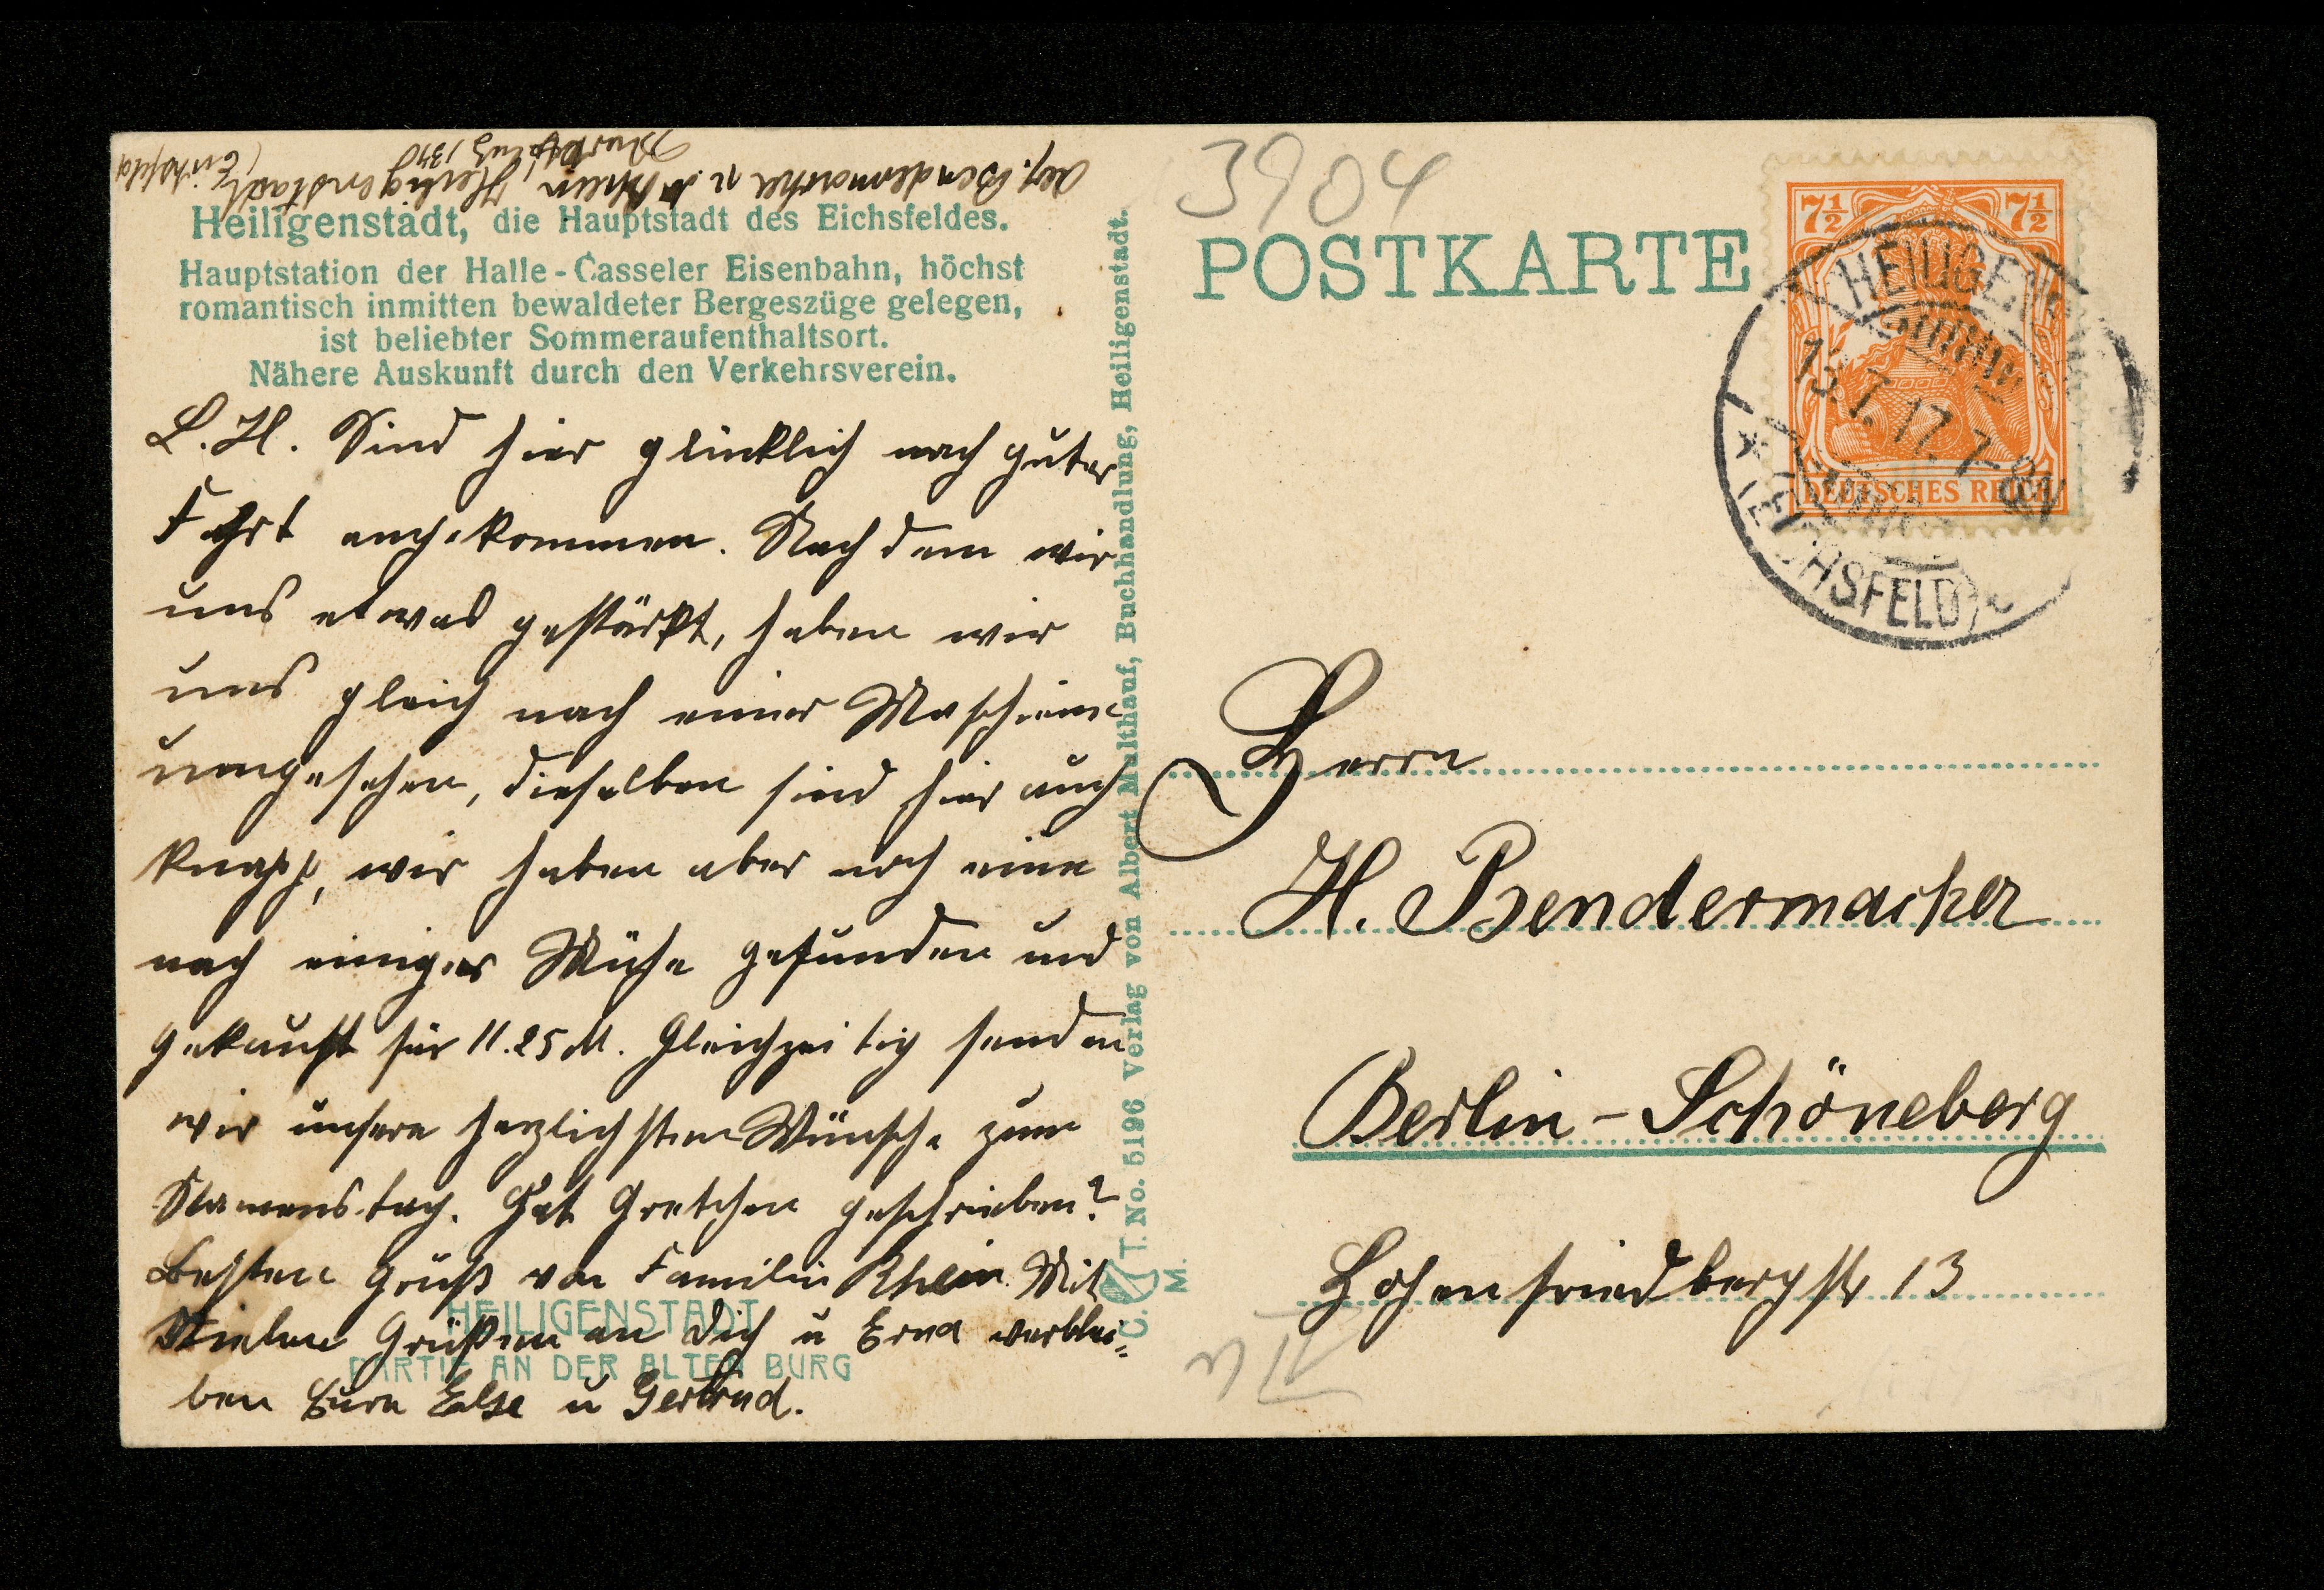 Abs. Bendermacher u. Rhein, Heiligenstadt (Eichsfeld
Marktplatz 1340
Heiligenstadt, die Hauptstadt des Eichsfeldes.
Hauptstation der Halle-Casseler Eisenbahn, höchst
romantisch inmitten bewaldeter Bergeszüge gelegen,
ist beliebter Sommeraufenthaltsort.
Nähere Auskunft durch den Verkehrsverein.
L. H. Sind hier glücklich nach guter
Fahrt angekommen. Nachdem wir
uns etwas gestärkt, haben wir
uns gleich nach einer Maschiene
umgesehen, dieselben sind hier auch
knapp, wir haben aber noch eine
nach einiger Mühe gefunden und
gekauft für 11.25 M. Gleichzeitig senden
wir unsere herzlichsten Wünsche zum
Namenstag. Hat Gretchen geschrieben?
Besten Gruß von Familie Rhein. Mit
Vielen Grüßen an Dich u Erna verblei=
ben Eure Else u Gertrud.
HEILIGENSTADT
PARTIE AN DER ALTEN BURG
C. T. M. No. 5196 Verlag von Albert Multhauf, Buchhandlung, Heiligenstadt.
3904
POSTKARTE
7½ 7½
DEUTSCHES REICH
HEILIGEN
13.7.17.7-8V
* (EICHSFELD) *
Herrn
H. Bendermacher
Berlin-Schöneberg
Hohenfriedbergstr 13